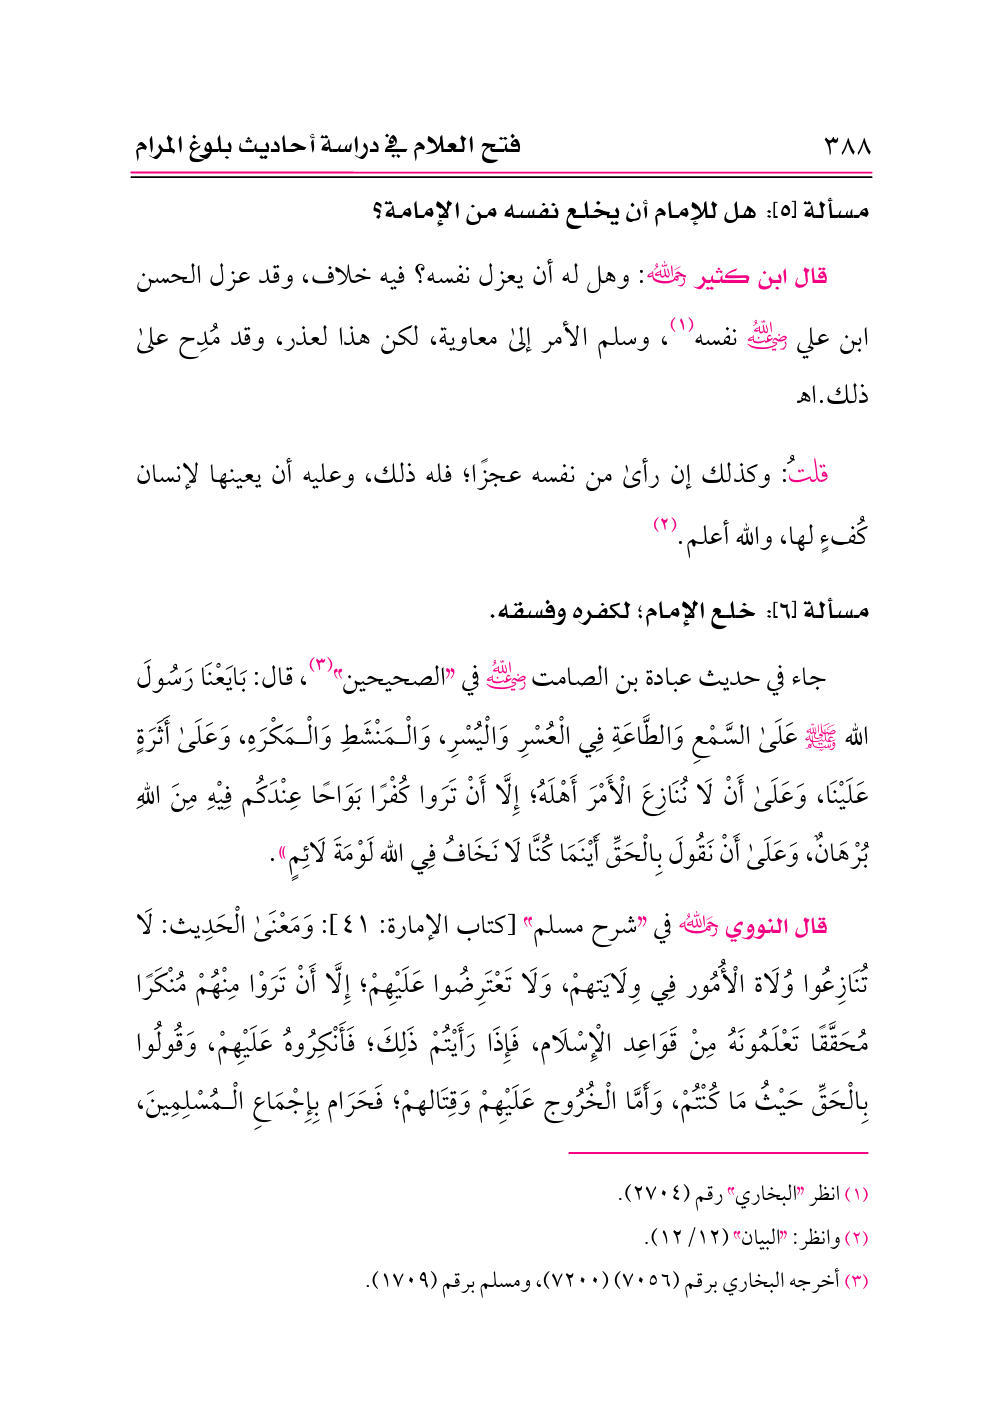 ٣٨٨ فتح العلام في دراسة أحاديث بلوغ المرام
مسألة [٥]: هل للإمام أن يخلع نفسه من الإمامة؟
قال ابن كثير رحمه الله: وهل له أن يعزل نفسه؟ فيه خلاف، وقد عزل الحسن
ابن علي رضي الله عنه نفسه(١)، وسلم الأمر إلىٰ معاوية، لكن هذا لعذر، وقد مُدِح علىٰ
ذلك.اهـ
قلتُ: وكذلك إن رأىٰ من نفسه عجزًا؛ فله ذلك، وعليه أن يعينها لإنسان
كُفءٍ لها، والله أعلم.(٢)
مسألة [٦]: خلع الإمام؛ لكفره وفسقه.
جاء في حديث عبادة بن الصامت رضي الله عنه في "الصحيحين"(٣)، قال: بَايَعْنَا رَسُولَ
الله ﷺ عَلَىٰ السَّمْعِ وَالطَّاعَةِ فِي الْعُسْرِ وَالْيُسْرِ، وَالْـمَنْشَطِ وَالْـمَكْرَهِ، وَعَلَىٰ أَثَرَةٍ
عَلَيْنَا، وَعَلَىٰ أَنْ لَا نُنَازِعَ الْأَمْرَ أَهْلَهُ؛ إِلَّا أَنْ تَرَوا كُفْرًا بَوَاحًا عِنْدَكُم فِيْهِ مِنَ اللهِ
بُرْهَانٌ، وَعَلَىٰ أَنْ نَقُولَ بِالْحَقِّ أَيْنَمَا كُنَّا لَا نَخَافُ فِي الله لَوْمَةَ لَائِمٍ».
قال النووي رحمه الله في "شرح مسلم" [كتاب الإمارة: ٤١]: وَمَعْنَىٰ الْحَدِيث: لَا
تُنَازِعُوا وُلَاة الْأُمُور فِي وِلَايَتهمْ، وَلَا تَعْتَرِضُوا عَلَيْهِمْ؛ إِلَّا أَنْ تَرَوْا مِنْهُمْ مُنْكَرًا
مُحَقَّقًا تَعْلَمُونَهُ مِنْ قَوَاعِد الْإِسْلَام، فَإِذَا رَأَيْتُمْ ذَلِكَ؛ فَأَنْكِرُوهُ عَلَيْهِمْ، وَقُولُوا
بِالْحَقِّ حَيْثُ مَا كُنْتُمْ، وَأَمَّا الْخُرُوج عَلَيْهِمْ وَقِتَالهمْ؛ فَحَرَام بِإِجْمَاعِ الْـمُسْلِمِينَ،
(١) انظر "البخاري" رقم (٢٧٠٤).
(٢) وانظر: "البيان" (١٢/ ١٢).
(٣) أخرجه البخاري برقم (٧٠٥٦) (٧٢٠٠)، ومسلم برقم (١٧٠٩).